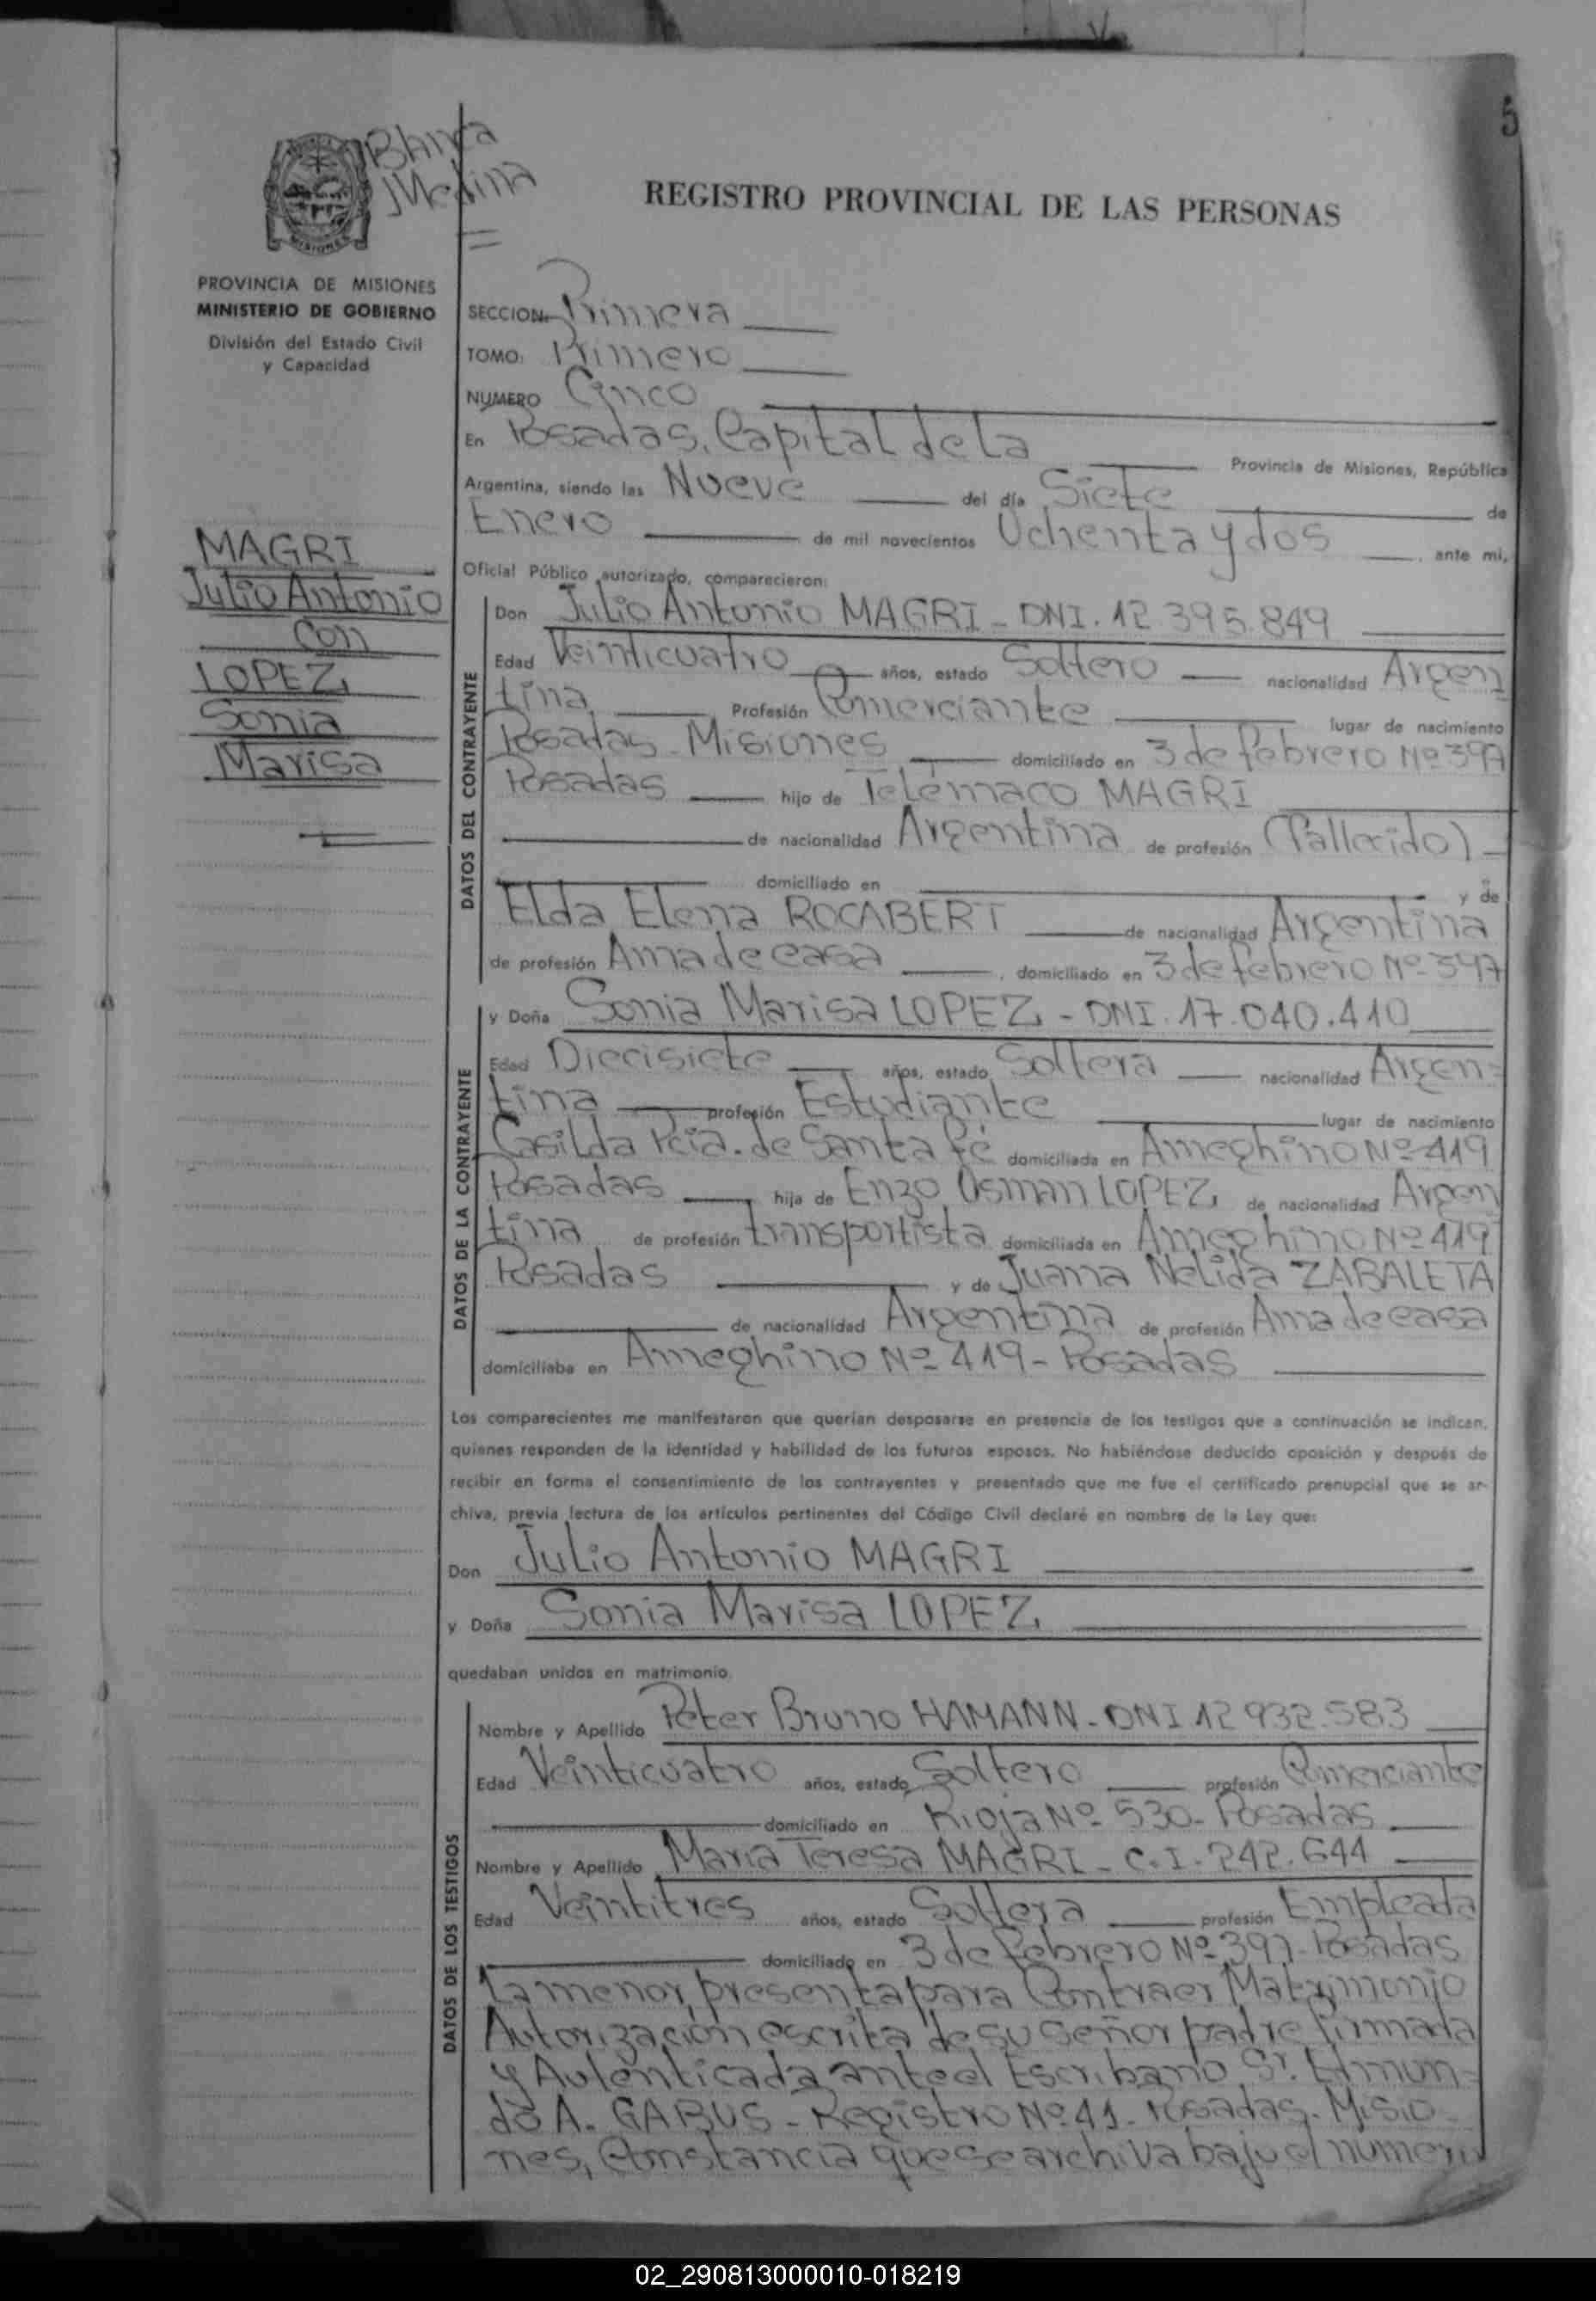 5
Blanca
Medina
REGISTRO PROVINCIAL DE LAS PERSONAS
PROVINCIA DE MISIONES
MINISTERIO DE GOBIERNO
División del Estado Civil
y Capacidad
MAGRI
Julio Antonio
Con
LOPEZ,
Sonia
Marisa
SECCION: Primera
TOMO: Primero
NUMERO Cinco
En Posadas, Capital de la Provincia de Misiones, República
Argentina, siendo las Nueve del día Siete de
Enero de mil novecientos Ochenta y dos ante mi,
Oficial Público autorizado, comparecieron:
DATOS DEL CONTRAYENTE
Don Julio Antonio MAGRI - DNI. 12.395.849
Edad Veinticuatro años, estado Soltero nacionalidad Argen
tina Profesión Comerciante lugar de nacimiento
Posadas - Misiones domiciliado en 3 de febrero Nº 397
Posadas hijo de Telémaco MAGRI
de nacionalidad Argentina de profesión (Fallecido) -
domiciliado en y de
Elda Elena ROCABERT de nacionalidad Argentina
de profesión Ama de casa, domiciliado en 3 de febrero Nº 397
DATOS DE LA CONTRAYENTE
y Doña Sonia Marisa LOPEZ, - DNI. 17.040.410
Edad Diecisiete años, estado Soltera nacionalidad Argen-
tina profesión Estudiante lugar de nacimiento
Casilda Pcia. de Santa Fé domiciliada en Ameghino Nº 419
Posadas hija de Enzo Osman LOPEZ, de nacionalidad Argen
tina de profesión transportista domiciliada en Ameghino Nº 419
Posadas y de Juana Nelida ZABALETA
de nacionalidad Argentina de profesión Ama de casa
domiciliaba en Ameghino Nº 419 - Posadas
Los comparecientes me manifestaron que querían desposarse en presencia de los testigos que a continuación se indican,
quienes responden de la identidad y habilidad de los futuros esposos. No habiéndose deducido oposición y después de
recibir en forma el consentimiento de los contrayentes y presentado que me fue el certificado prenupcial que se ar-
chiva, previa lectura de los artículos pertinentes del Código Civil declaré en nombre de la Ley que:
Don Julio Antonio MAGRI
y Doña Sonia Marisa LOPEZ,
quedaban unidos en matrimonio.
DATOS DE LOS TESTIGOS
Nombre y Apellido Peter Bruno HAMANN - DNI 12.932.583
Edad Veinticuatro años, estado Soltero profesión Comerciante
domiciliado en Rioja Nº 530 - Posadas
Nombre y Apellido Maria Teresa MAGRI - C.I. 242.644
Edad Veintitres años, estado Soltera profesión Empleada
domiciliado en 3 de Febrero Nº 397 - Posadas
La menor, presenta para Contraer Matrimonio
Autorización escrita de su señor padre firmada
y Autenticada ante el Escribano Sr. Edmun-
do A. GABUS - Registro Nº 41 - Posadas - Misio-
nes, Constancia que se archiva bajo el numero
02_290813000010-018219